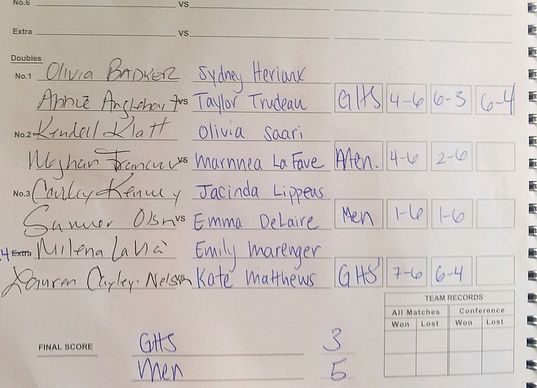 No.6 VS
Extra VS
Doubles
No.1 Olivia BADKER Sydney Herioux
Annie vs Taylor Trudeau GHS 4-6 6-3 6-4
No.2 Kendell Klatt Olivia Saari
Meghan vs Marnnea LaFave Men. 4-6 2-6
No.3 Carley Kenney Jacinda Lippens
Sumner Olsn vs Emma DeLaire Men 1-6 1-6
4 Extra Milena Emily Marenger
Lauren Cayley-Nelson Kate Matthews GHS 7-6 6-4
TEAM RECORDS
All Matches Conference
Won Lost Won Lost
FINAL SCORE GHS 3
Men 5